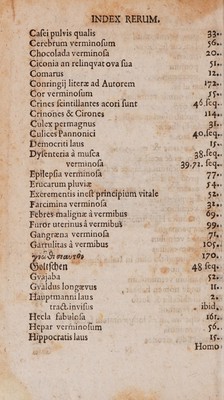 INDEX RERUM.
Casei pulvis qualis 33.
Cerebrum verminosum 56.
Chocolada verminosa 20.
Ciconia an relinquat ova sua 51.
Comarus 12.
Contingij literæ ad Autorem 172.
Cor verminosum 55.
Crines scintillantes acori sunt 46.seq.
Crinones & Cirones 114.
Culex permagnus 31.
Culices Pannonici 40.seq.
Democriti laus 15.
Dysenteria à musca 38.seq.
verminosa 39.72.seq.
Epilepsia verminosa 77.
Erucarum pluviæ 54.
Excrementis inest principium vitale 52.
Farcimina verminosa 31.
Febres malignæ à vermibus 69.
Furor uterinus à vermibus 99.
Gangræna verminosa 71.
Garrulitas à vermibus 105.
γνῶθι σεαυτὸν 170.
Geltschen 48 seq.
Gvajaba 52.
Gvaldus longævus 11.
Hauptmanni laus 2.
tract.invisus ibid.
Hecla fabulosa 161.
Hepar verminosum 56.
Hippocratis laus 15.
Homo